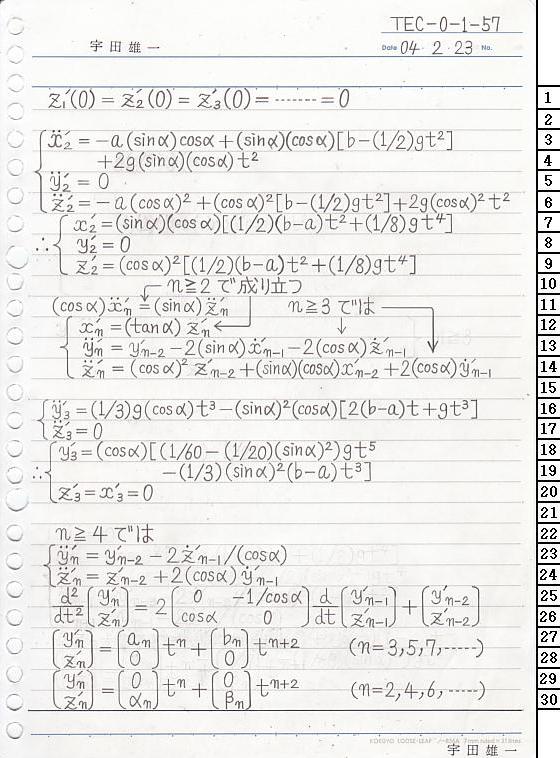 TEC-0-1-57
宇田雄一
Date 04・2・23 No.
z₁′(0) = z₂′(0) = z₃′(0) = ------- = 0
ẍ₂′ = -a(sinα)cosα + (sinα)(cosα)[b-(1/2)gt²]
+2g(sinα)(cosα)t²
ÿ₂′ = 0
z̈₂′ = -a(cosα)² + (cosα)²[b-(1/2)gt²]+2g(cosα)²t²
∴ x₂′ = (sinα)(cosα)[(1/2)(b-a)t²+(1/8)gt⁴]
y₂′ = 0
z₂′ = (cosα)²[(1/2)(b-a)t²+(1/8)gt⁴]
n≧2で成り立つ
(cosα)ẍₙ′ = (sinα)z̈ₙ′ n≧3では
xₙ′ = (tanα)zₙ′
ÿₙ′ = yₙ₋₂′ - 2(sinα)ẋₙ₋₁′ - 2(cosα)żₙ₋₁′
z̈ₙ′ = (cosα)² zₙ₋₂′ + (sinα)(cosα)xₙ₋₂′ + 2(cosα)ẏₙ₋₁′
ÿ₃′ = (1/3)g(cosα)t³ - (sinα)²(cosα)[2(b-a)t+gt³]
z̈₃′ = 0
∴ y₃′ = (cosα)[(1/60 - (1/20)(sinα)²)gt⁵
-(1/3)(sinα)²(b-a)t³]
z₃′ = x₃′ = 0
n≧4では
ÿₙ′ = yₙ₋₂′ - 2żₙ₋₁′/(cosα)
z̈ₙ′ = zₙ₋₂′ + 2(cosα)ẏₙ₋₁′
d²/dt² [yₙ′ zₙ′] = 2[0 -1/cosα cosα 0] d/dt [yₙ₋₁′ zₙ₋₁′] + [yₙ₋₂′ zₙ₋₂′]
[yₙ′ zₙ′] = [aₙ 0]tⁿ + [bₙ 0]tⁿ⁺² (n=3,5,7,-----)
[yₙ′ zₙ′] = [0 αₙ]tⁿ + [0 βₙ]tⁿ⁺² (n=2,4,6,-----)
KOKUYO LOOSE-LEAF
宇田雄一
1
2
3
4
5
6
7
8
9
10
11
12
13
14
15
16
17
18
19
20
21
22
23
24
25
26
27
28
29
30